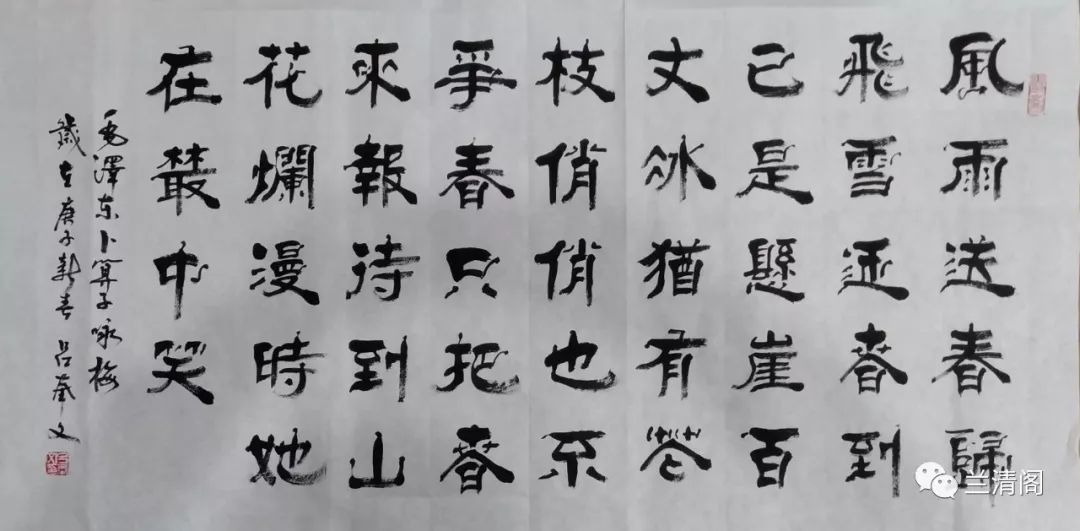 風雨送春歸
飛雪迎春到
已是懸崖百
丈冰猶有花
枝俏俏也不
爭春只把春
來報待到山
花爛漫時她
在叢中笑
毛澤东卜算子咏梅
歲在庚子新春 呂奉文
兰清阁